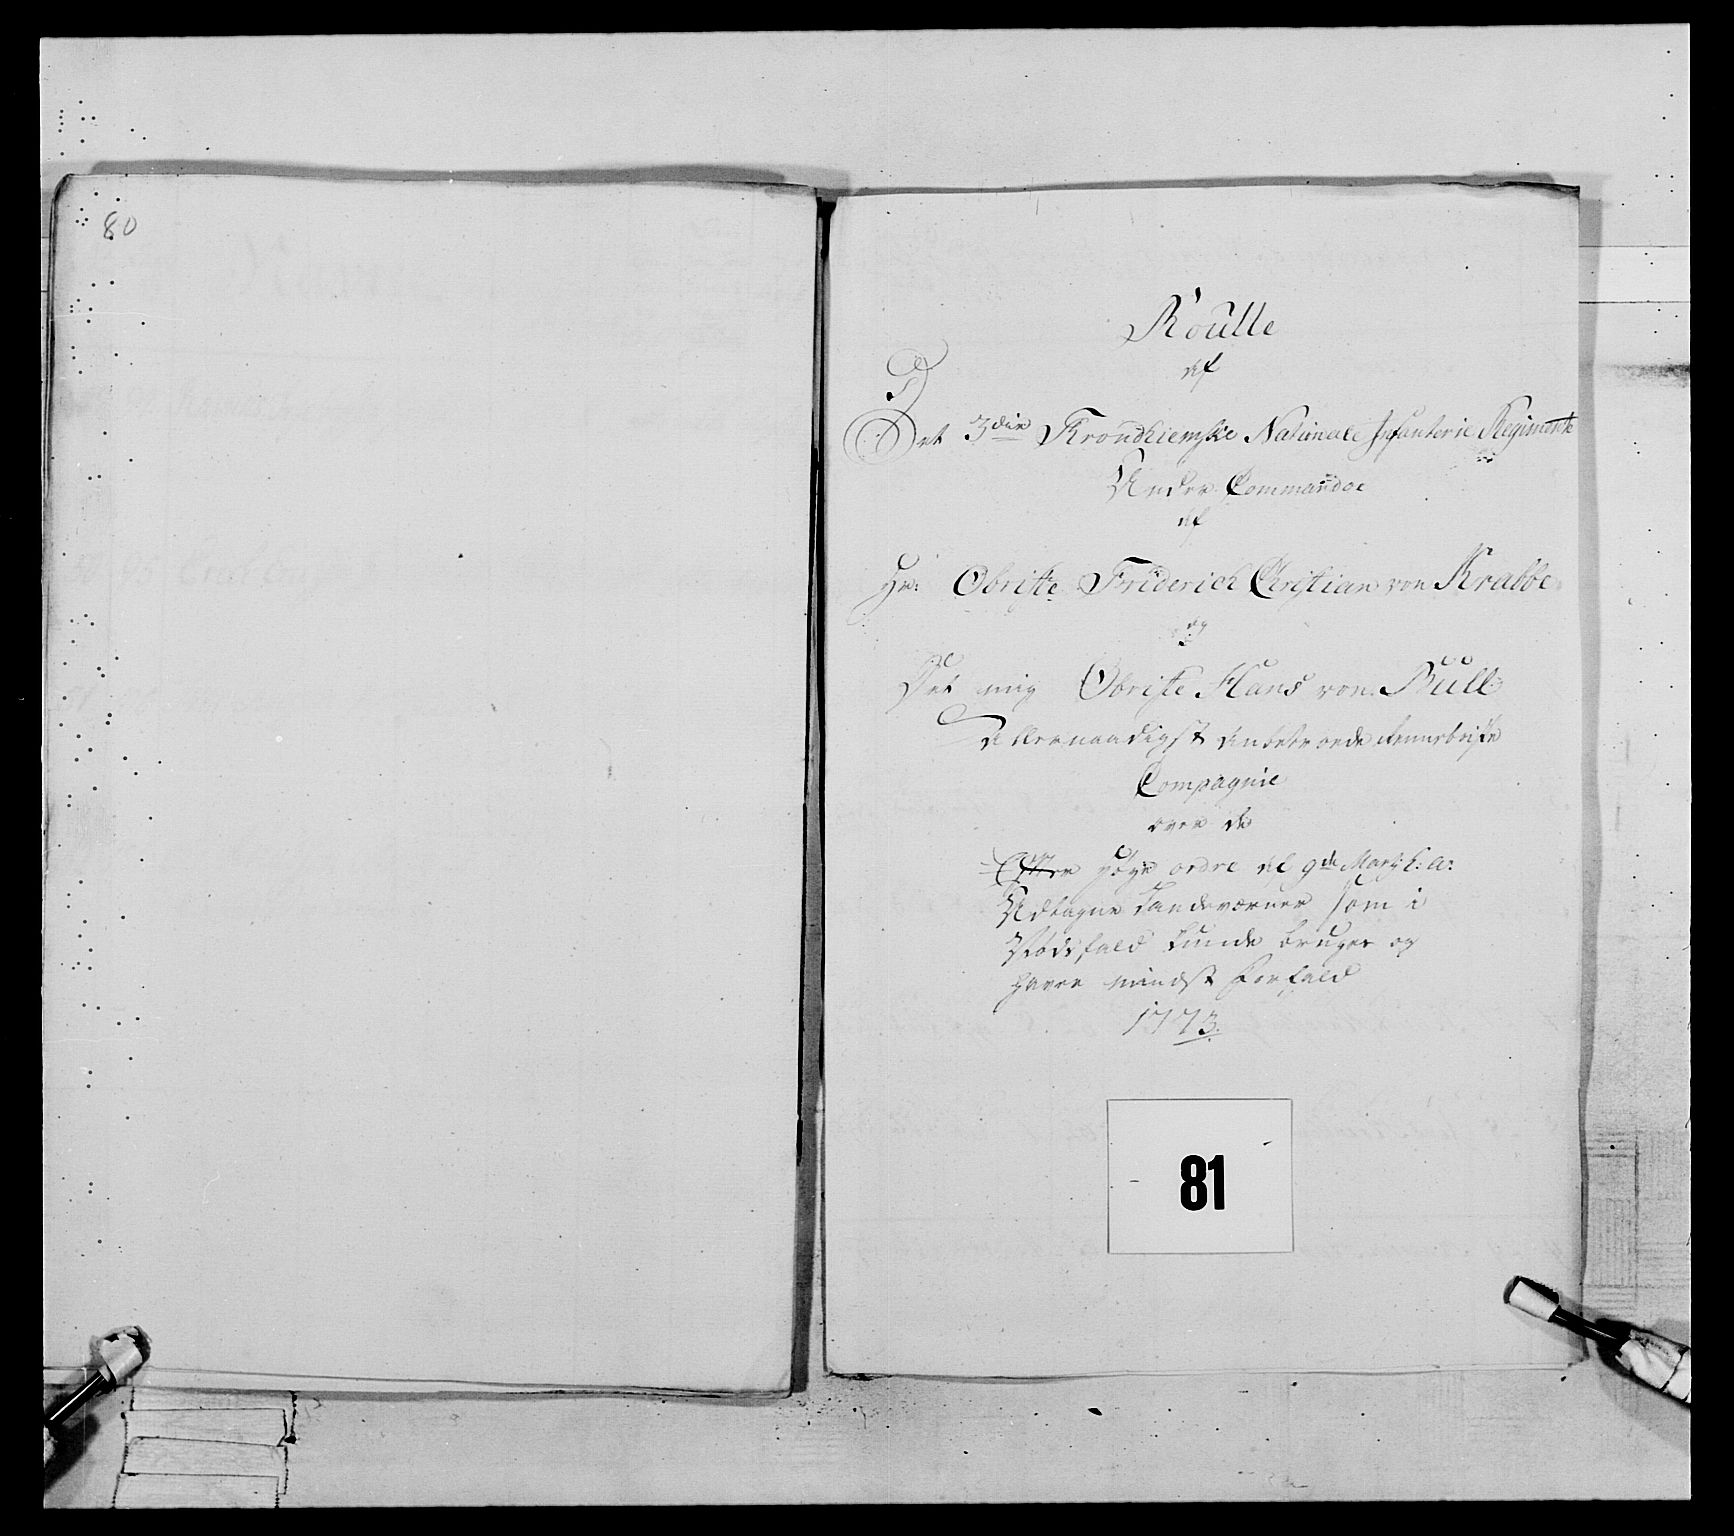 80
Roulle
af
Det 3die Trondhiemske Nationale Infanterie Regimente
Under Commandoe
af
Hr: Obriste Friderich Christian von Krabbe
og
Det mig Obriste Hans von Bull
allernaadigst anbetroede
Compagnie
over de
Efter høye ordre af 9de Martj h: a:
Udtagne Landeværner som i
Nødsfald kunde bruges og
haver mindst Forfald
1773.
81